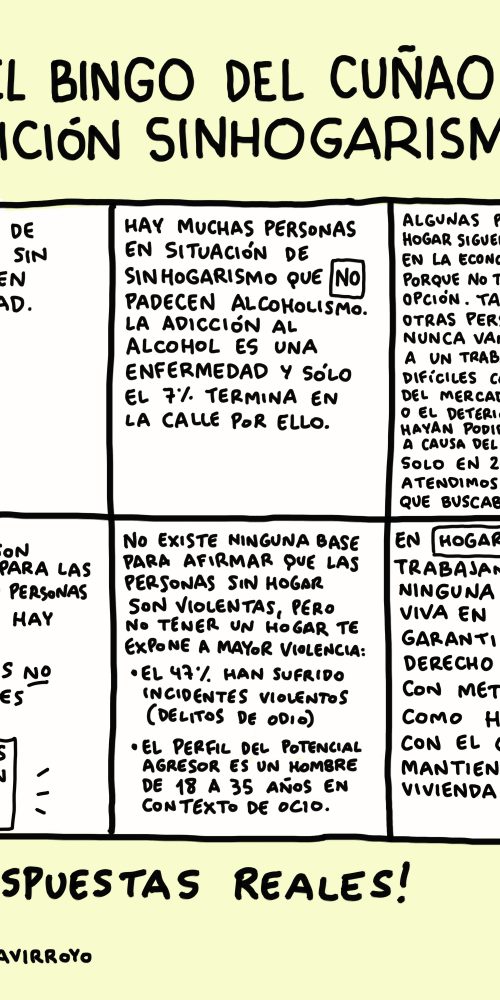 EL BINGO DEL CUÑAO
ICIÓN SINHOGARISM
DE
SIN
EN
AD.
HAY MUCHAS PERSONAS
EN SITUACIÓN DE
SINHOGARISMO QUE NO
PADECEN ALCOHOLISMO.
LA ADICCIÓN AL
ALCOHOL ES UNA
ENFERMEDAD Y SÓLO
EL 7% TERMINA EN
LA CALLE POR ELLO.
ALGUNAS P
HOGAR SIGUE
EN LA ECON
PORQUE NO T
OPCIÓN. TA
OTRAS PERS
NUNCA VA
A UN TRAB
DIFÍCILES C
DEL MERCAD
O EL DETERI
HAYAN PODI
A CAUSA DEL
SOLO EN 2
ATENDIMOS
QUE BUSCAB
SON
PARA LAS
PERSONAS
HAY
S NO
ES
S
N
NO EXISTE NINGUNA BASE
PARA AFIRMAR QUE LAS
PERSONAS SIN HOGAR
SON VIOLENTAS, PERO
NO TENER UN HOGAR TE
EXPONE A MAYOR VIOLENCIA:
• EL 47% HAN SUFRIDO
INCIDENTES VIOLENTOS
(DELITOS DE ODIO)
• EL PERFIL DEL POTENCIAL
AGRESOR ES UN HOMBRE
DE 18 A 35 AÑOS EN
CONTEXTO DE OCIO.
EN HOGAR
TRABAJAN
NINGUNA
VIVA EN
GARANTI
DERECHO
CON MÉT
COMO H
CON EL
MANTIEN
VIVIENDA
SPUESTAS REALES!
AVIRROYO